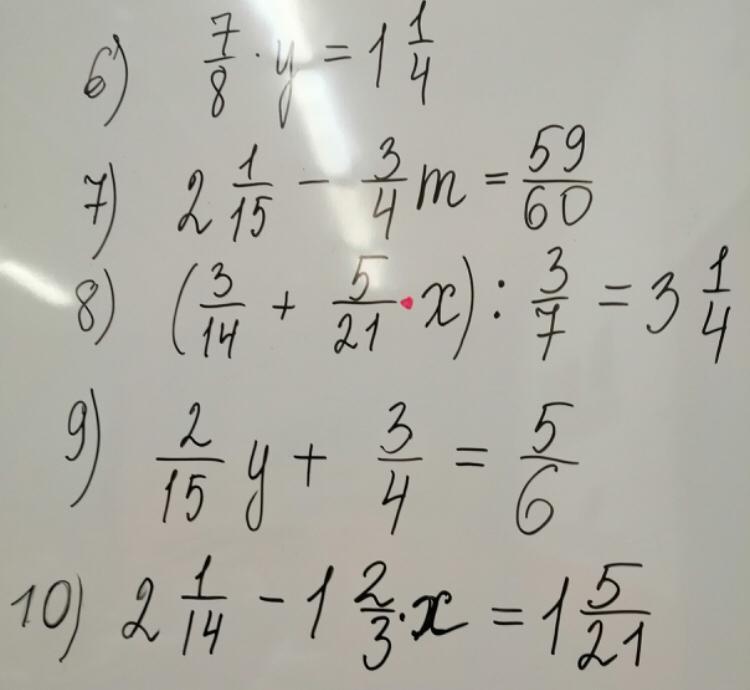 6) 7/8 · y = 1 1/4
7) 2 1/15 - 3/4 m = 59/60
8) (3/14 + 5/21 · x) : 3/7 = 3 1/4
9) 2/15 y + 3/4 = 5/6
10) 2 1/14 - 1 2/3 · x = 1 5/21